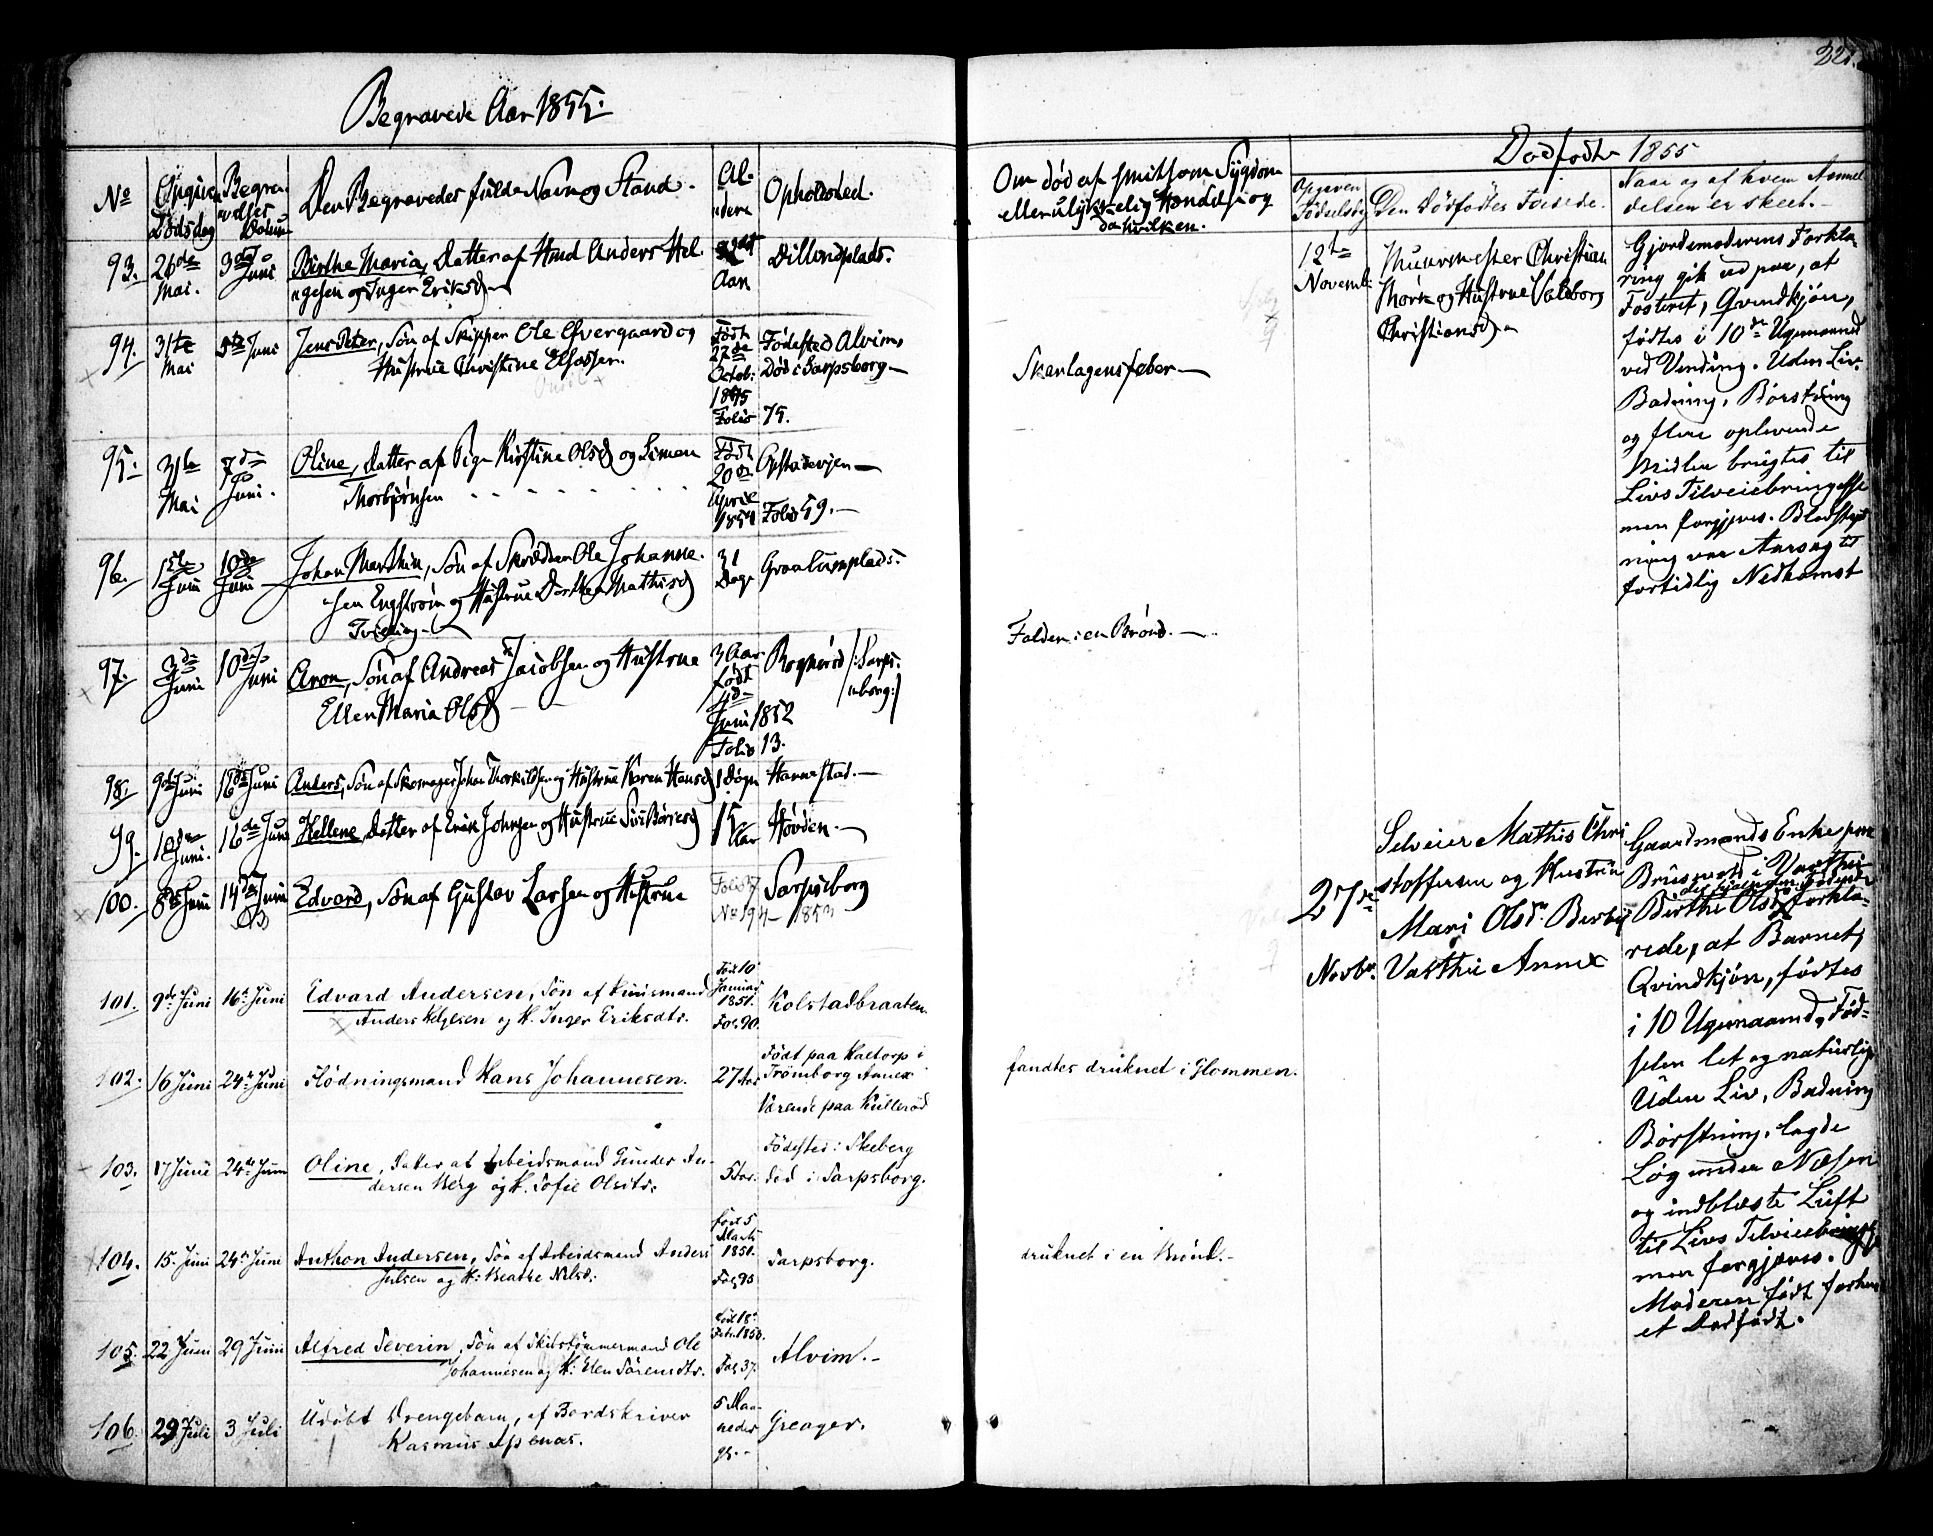 221.
Begravede Aar 1855.
No
Dødsdag
Begravelses Datum
Den Begravedes fulde Navn og Stand.
Alder
Opholdssted.
93. 26de Mai. 3die Juni Birthe Maria, Datter af Huusmd Anders Hel-
gesen og Inger Eriksd Aar Dillundplads.
94. 31te Mai 5te Juni Jens Peter, Søn af Skipper Ole Overgaard og
Hustrue Christine
Født 27de Octob: Folio 75.
Fødested Alvim,
Død i Sarpsborg
95. 31te Mai 7de Juni. Oline, Datter af Pige Kirstine Olsd og Simen
Thorbjørnsen
Født 20de April 1854 Folio 59.
Opstadeien
96. 1ste Juni 10de Juni Johan Marthin, Søn af Skrædder Ole Johanne-
sen Engstrøm og Hustrue Dorthea Mathisd
Tvilling
31 Dage Graalumplads.
97. 3die Juni 10de Juni Aron, Søn af Andreas Jacobsen og Hustrue
Ellen Maria Olsd
3 Aar født Juni 1852 Folio 13.
(: Sarps-
borg :)
98. 9de Juni 16de Juni Anders, Søn af Skomager Johan Thorkildsen og Hustrue Karen Hansd 1 Døgn Hannestad.
99. 10de Juni. 16de Juni Hellene, Datter af Erik Johnsen og Hustrue Siri Børresd 15 Aar Hovden.
100. 8de Juni 14de Juni Edvard, Søn af Gustav Larsen og Hustrue
No 194 1853
Sarpsborg
101. 9de Juni 16de Juni Edvard Andersen, Søn af Huusmand
Anders Helgesen og H. Inger Eriksdtr.
Født 10 Januar 1851. Fol. 90. Kolstadbraaten.
102. 16 Juni 24de Juni Flødningsmand Hans Johannesen. 27 Aar
Født paa Kaltorp i
Trømborg Annex
Værende paa Kullerød
103. 17 Juni 24de Juni Oline, Datter af Arbeidsmand Gunder An-
dersen Berg og H. Sofie Olsdtr.
5 Aar.
Fødested: Skeberg
død i Sarpsborg.
104. 15. Juni 24de Juni Anthon Andersen, Søn af Arbeidsmand Anders
Julsen og H: Beathe Nilsd:
født 5 Marts 1851. Fol. 93 Sarpsborg.
105. 22 Juni 29 Juni Alfred Severin, Søn af Skibstømmermand Ole
Johannesen og H: Elen Sørensdtr.
Født 18de Febr. 1850. Fol. 37. Alvim.
106. 29 Juli 3 Juli Udøbt Drengebarn, af Bordskriver
Rasmus Apenæs.
5 Maa-
neder
gl. Greager.
Om død af smitsom Sygdom
eller ulykkelig Hændelse og
da hvilken.
Skarlagensfeber
Falden i en Brønd.
fandtes druknet i Glommen.
druknet i en Brønd.
Dødfødte 1855
Opgiven Fødselsdag
Den Dødfødtes Forældre.
Naar og af hvem Anmel-
delsen er skeet.
12te Novemb:
Muurmester Christian
Mørk og Hustrue Valborg
Christiansd
Gjordemoderens Forkla-
ring gik ud paa, at
Fosteret, Qvindkjøn,
fødtes i 10de Ugemaaned
ved Vending. Uden Liv.
Badning, Børstning
og flere oplivende
Midler brugtes til
Livs Tilveiebringelse
men forgjæves. Blodstyrt-
ning var Aarsag til
fortidlig Nedkomst
27de Novbr.
Selveier Mathis Chri-
stoffersen og Hustru
Mari Olsdr. Berby
Varthei Annex
Gaardmands Enke paa
Brusevold i Varthei
Birthe Olsd forkla-
rede, at Barnet,
Qvindkjøn, fødtes
i 10 Ugemaaned, Fød-
selen let og naturlig
Uden Liv, Badning
Børstning, lagde
Løg under Næsen
og indblæste Luft
til Livs Tilveiebringelse
men forgjæves.
Moderen født forhen
et Dødfødt.